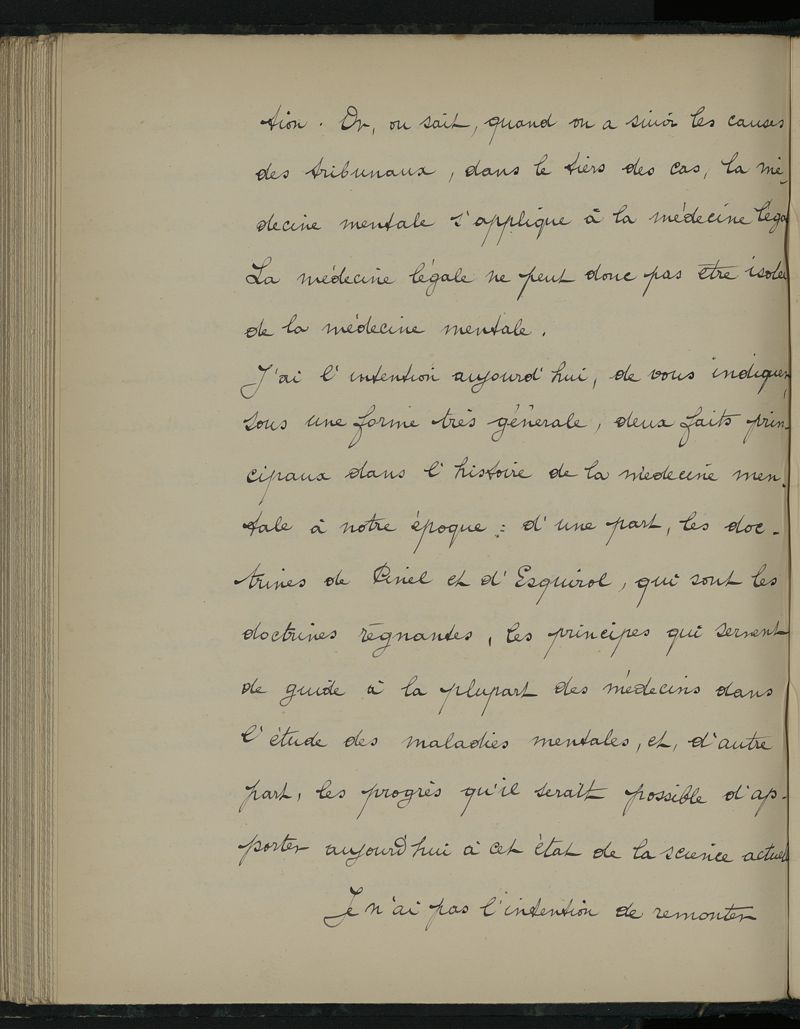 tion. Or, on sait, quand on a suivi les causes
des tribunaux, dans le tiers des cas, la mé-
decine mentale s'applique à la médecine léga
La médecine légale ne peut donc pas être isolée
de la médecine mentale.
J'ai l'intention aujourd'hui, de vous indiquer,
sous une forme très générale, deux faits prin-
cipaux dans l'histoire de la médecine men-
tale à notre époque : d'une part, les doc-
trines de Pinel et d'Esquirol, qui sont les
doctrines régnantes, les principes qui servent
de guide à la plupart des médecins dans
l'étude des maladies mentales, et, d'autre
part, les progrès qu'il serait possible d'ap-
porter aujourd'hui à cet état de la science actuel
Je n'ai pas l'intention de remonter